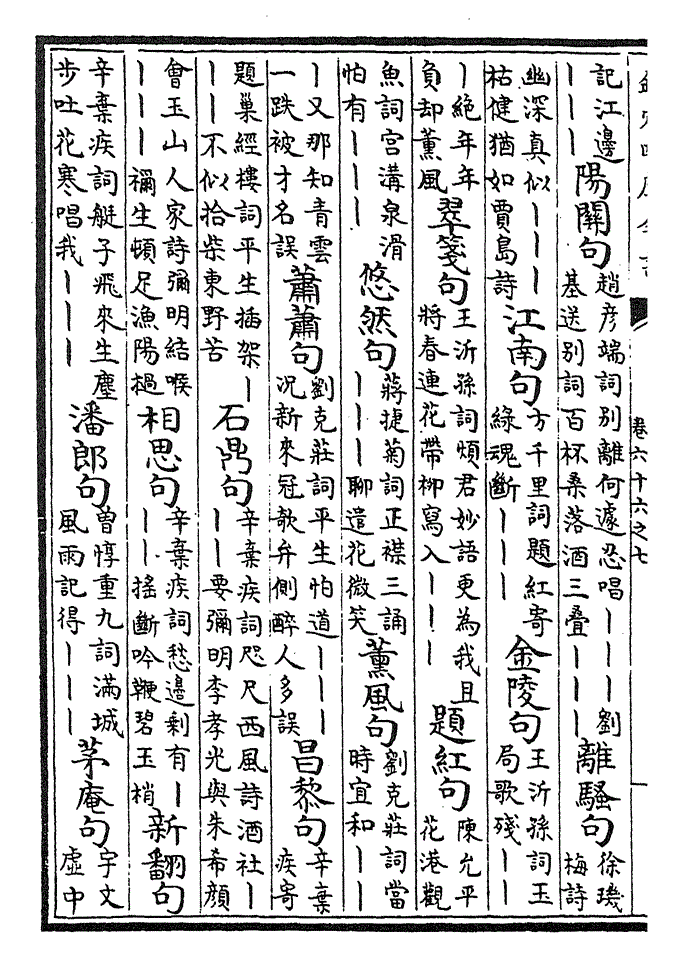 欽定四庫全書 卷六十六之七
記江邊｜｜｜陽關句趙彥端詞别離何遽忍唱｜｜｜劉基送别詞百杯桑落酒三疊｜｜｜離騷句徐璣梅詩
幽深真似｜｜｜枯健猶如賈島詩江南句方千里詞題紅寄綠魂斷｜｜｜金陵句王沂孫詞玉局歌殘｜｜
｜絕年年負却薰風翠箋句王沂孫詞煩君妙語更為我且將春連花帶柳寫入｜｜｜題紅句陳允平花港觀
魚詞宫溝泉滑怕有｜｜｜悠然句蔣捷菊詞正襟三誦｜｜｜聊遣花微笑薰風句劉克莊詞當時宜和｜｜
｜又那知青雲一跌被才名誤蕭蕭句劉克莊詞平生怕道｜｜｜况新來冠欹弁側醉人多誤昌黎句辛棄疾寄
題巢經樓詞平生插架｜｜｜不似拾柴東野苦石鼎句辛棄疾詞咫尺西風詩酒社｜｜｜要彌明李孝光與朱希顔
會玉山人家詩彌明結喉｜｜｜禰生頓足漁陽撾相思句辛棄疾詞愁邊剩有｜｜｜搖斷吟鞭碧玉梢新翻句
辛棄疾詞艇子飛來生塵步吐花寒唱我｜｜｜潘郎句曾惇重九詞滿城風雨記得｜｜｜茅庵句宇文虛中